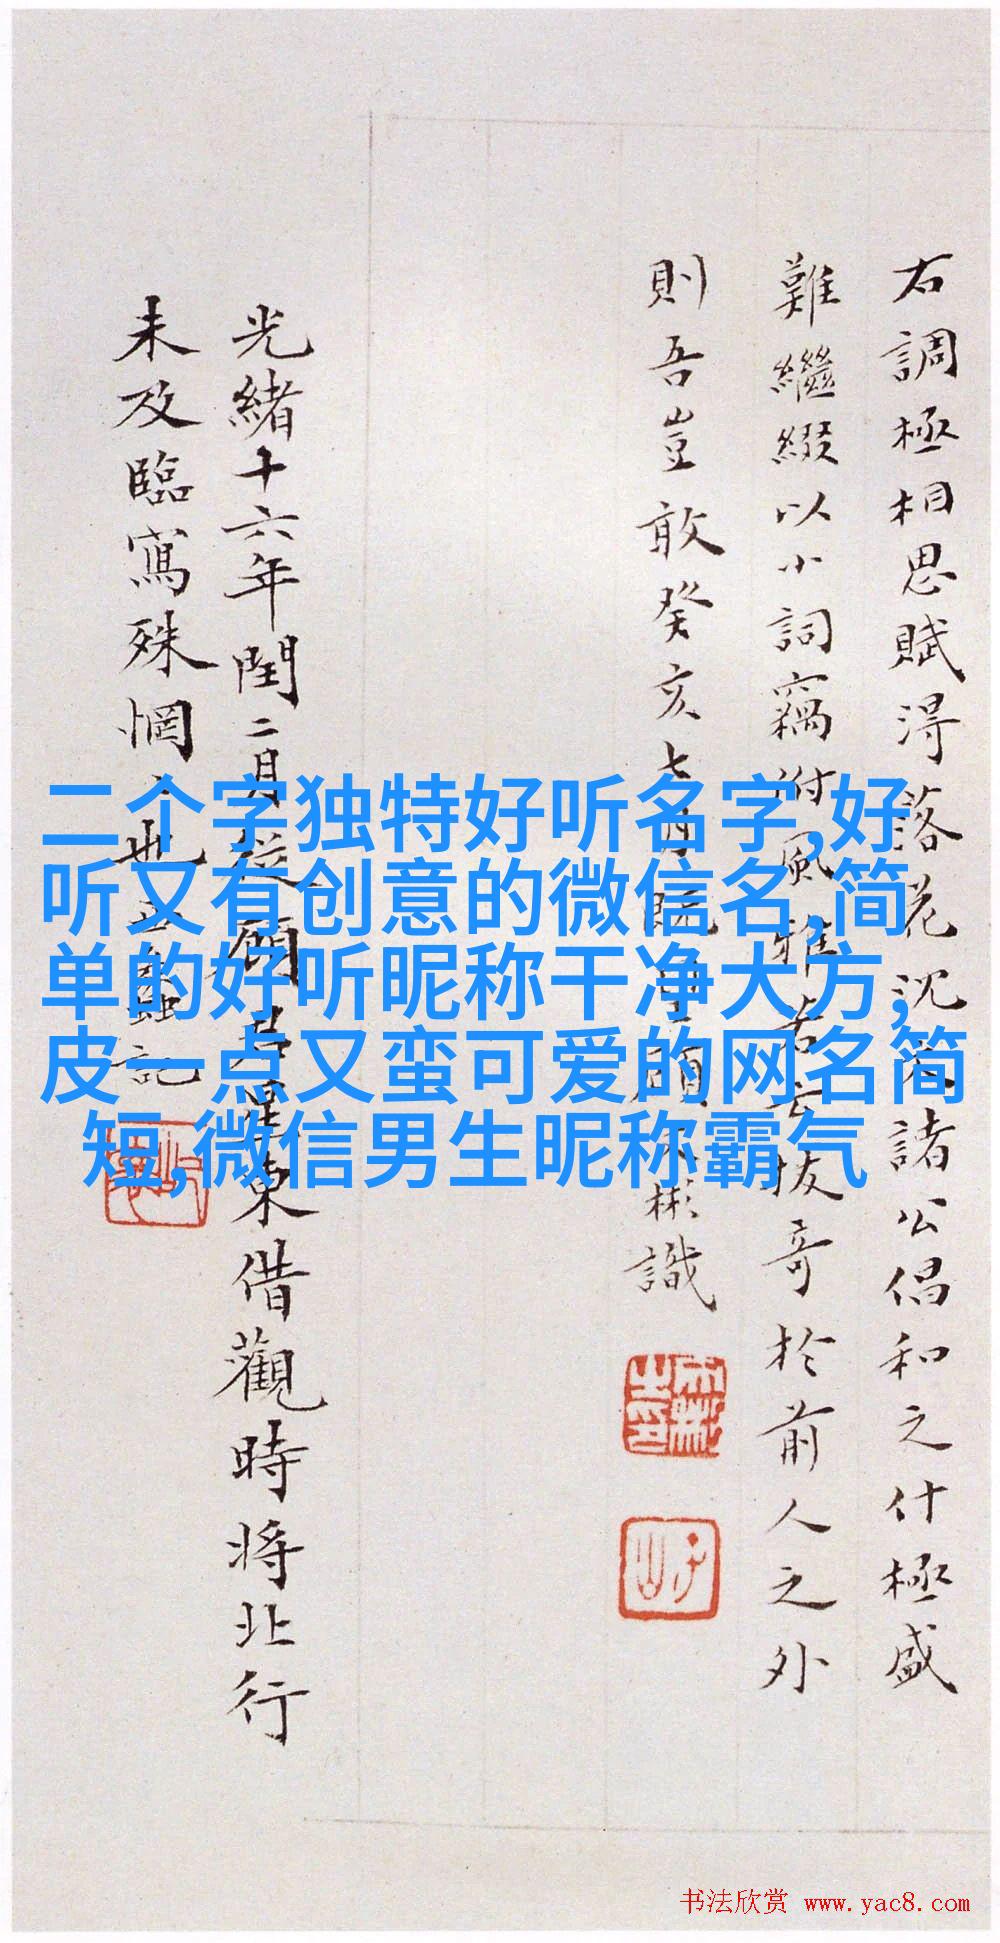 右調極相思賦得落花沉諸公倡和之什極盛
難繼綴以小詞竊附風雅若云拔奇於前人之外
則吾豈敢癸亥七月彬識
光緒十六年閏二月從顧星東借觀時將北行
未及臨寫殊惘也記
二个字独特好听名字,好
听又有创意的微信名,简
单的好听昵称干净大方,
皮一点又蛮可爱的网名简
短,微信男生昵称霸气
书法欣赏 www.yac8.com